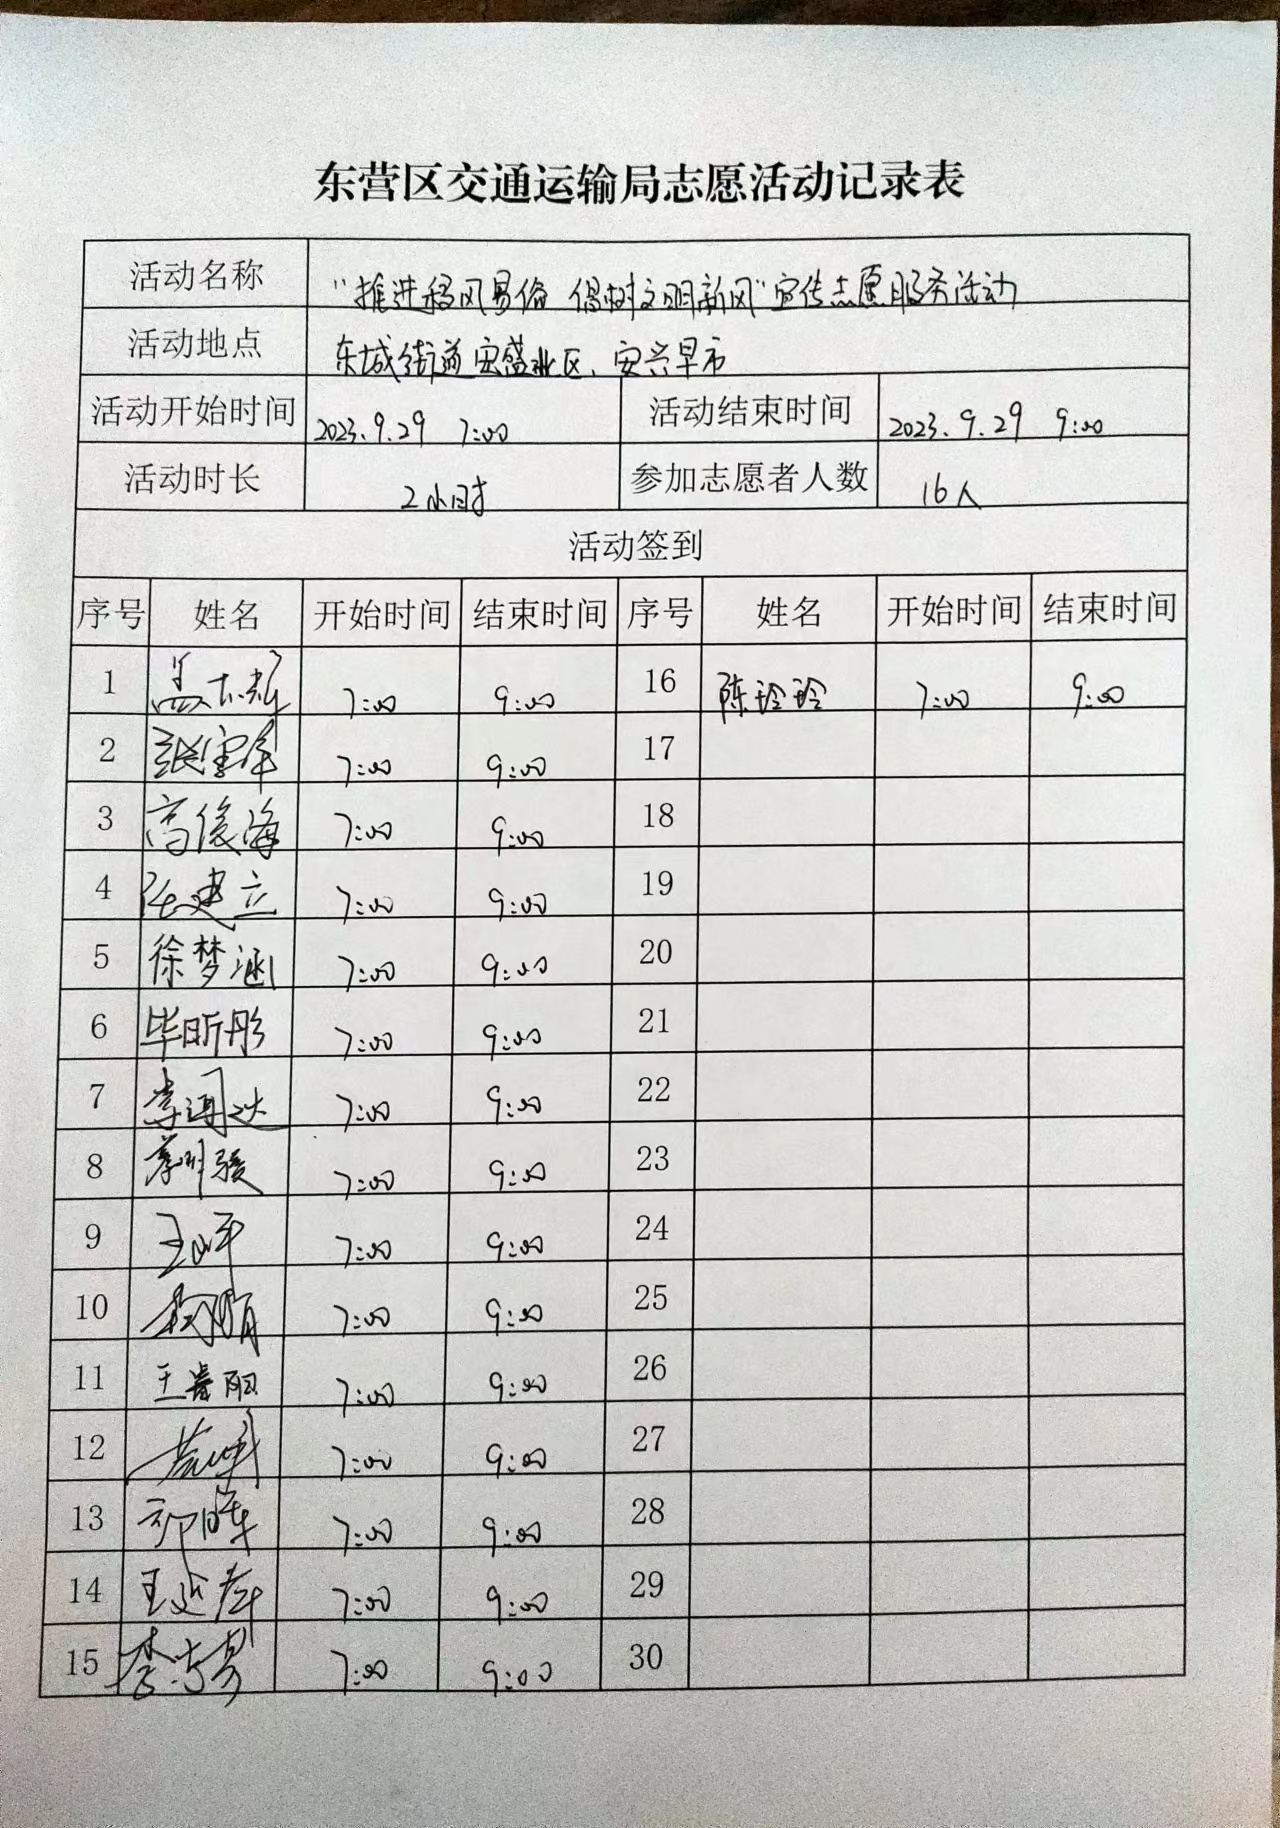 东营区交通运输局志愿活动记录表
活动名称 "推进移风易俗 倡树文明新风"宣传志愿服务活动
活动地点 东城街道安盛北区、安兴早市
活动开始时间 2023.9.29 7:00 活动结束时间 2023.9.29 9:00
活动时长 2小时 参加志愿者人数 16人
活动签到
序号 姓名 开始时间 结束时间 序号 姓名 开始时间 结束时间
1 7:00 9:00 16 陈玲玲 7:00 9:00
2 7:00 9:00 17
3 高俊海 7:00 9:00 18
4 张建立 7:00 9:00 19
5 徐梦涵 7:00 9:00 20
6 毕昕彤 7:00 9:00 21
7 7:00 9:00 22
8 7:00 9:00 23
9 7:00 9:00 24
10 7:00 9:00 25
11 王春阳 7:00 9:00 26
12 7:00 9:00 27
13 7:00 9:00 28
14 7:00 9:00 29
15 7:00 9:00 30